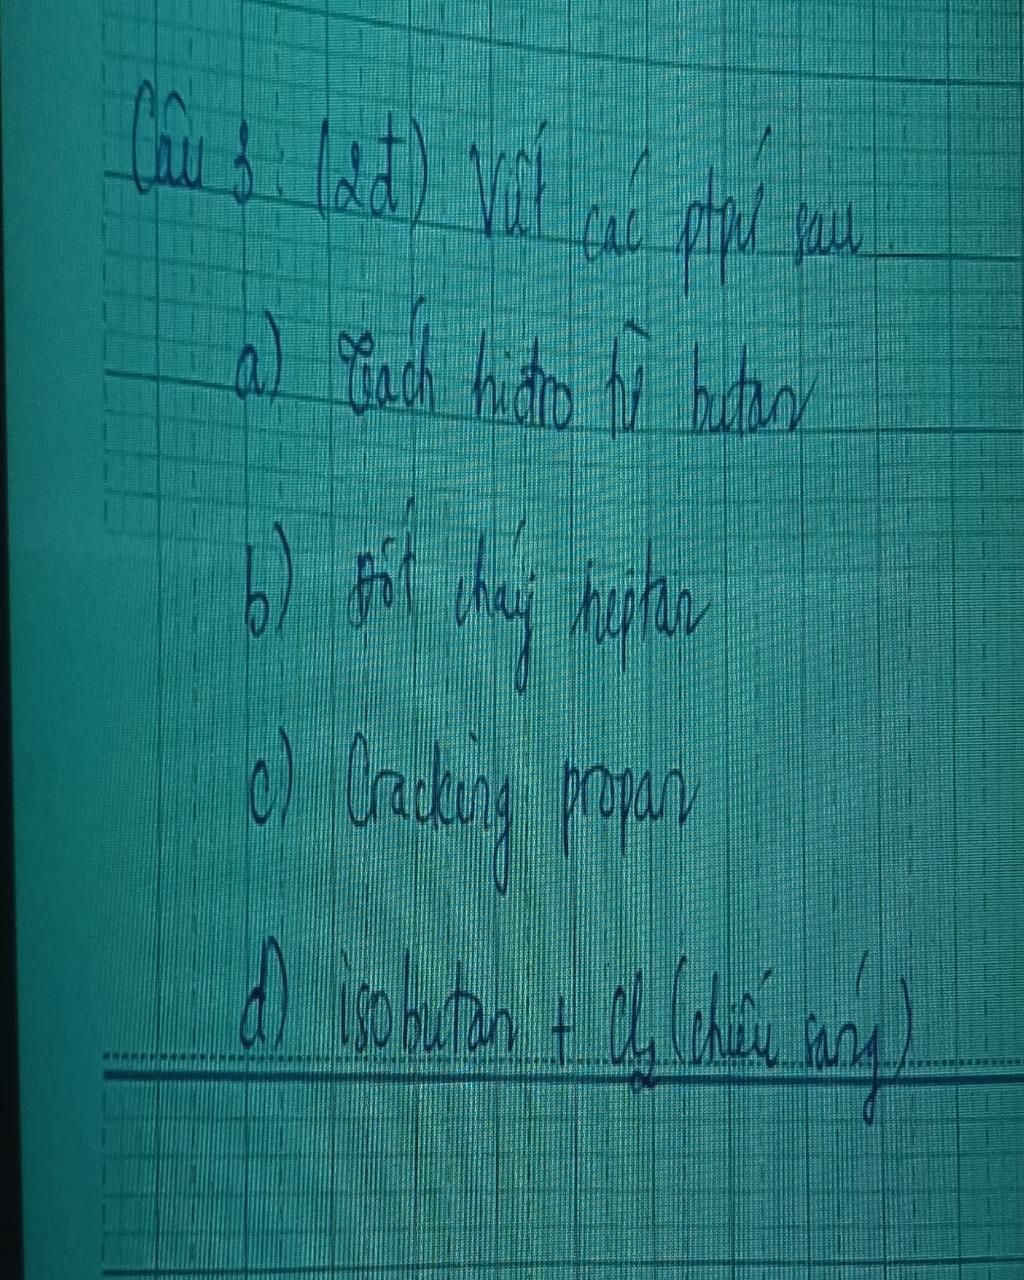 Câu 3: (2đ) Viết các ptpứ sau
a) Tách hiđro từ butan
b) Đốt cháy heptan
c) Cracking propan
d) isobutan + Cl₂ (chiếu sáng)